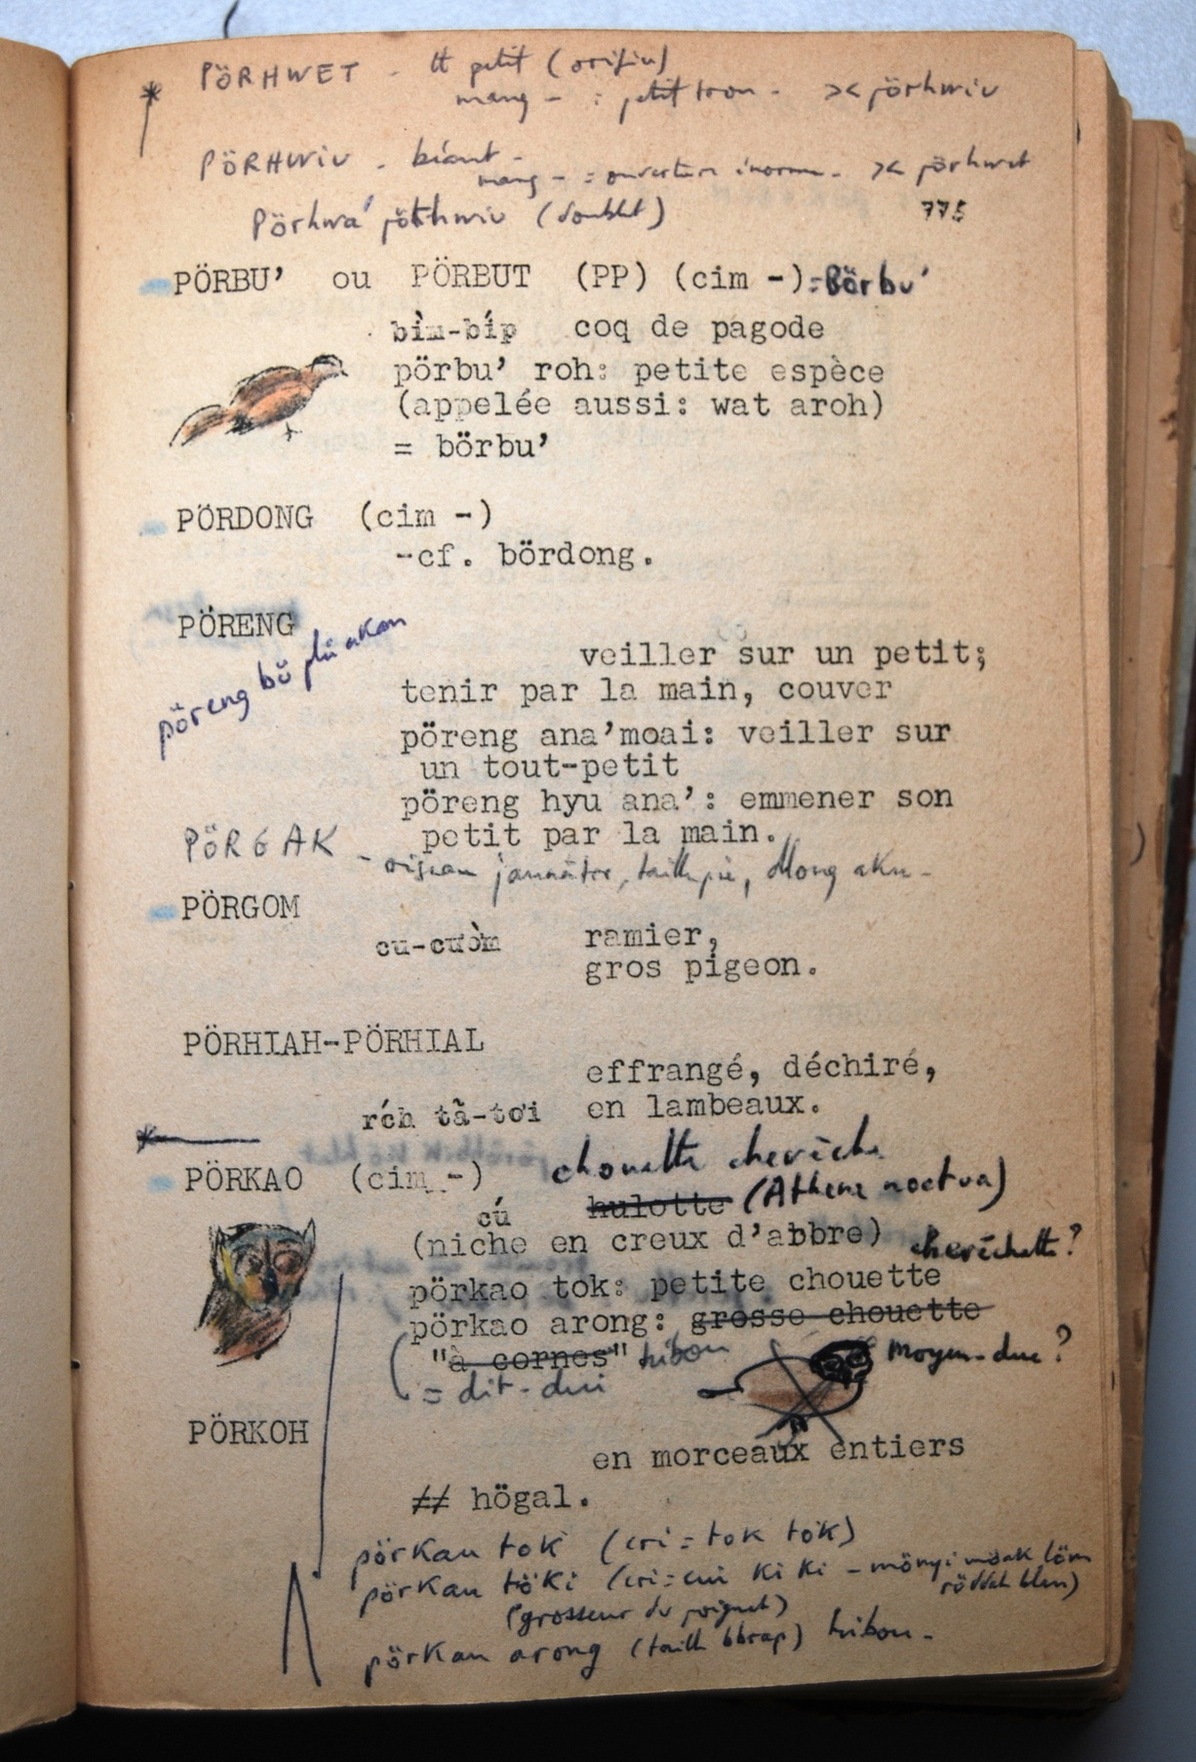 PÖRHWET - tt petit (orifice)
mang - : petit trou - >< pörhwiu
PÖRHWIU - béant -
mang - = ouverture énorme - >< pörhwet
Pörhwa' pörhwiu (doublet)
775
PÖRBU' ou PÖRBUT (PP) (cim -) = Börbu'
bìm-bíp coq de pagode
pörbu' roh: petite espèce
(appelée aussi: wat aroh)
= börbu'
PÖRDONG (cim -)
-cf. bördong.
PÖRENG
pöreng bŏ akan
veiller sur un petit;
tenir par la main, couver
pöreng ana'moai: veiller sur
un tout-petit
pöreng hyu ana': emmener son
petit par la main.
PÖRGAK - oiseau jaunâtre, taille pie,
PÖRGOM
cu-cườm ramier,
gros pigeon.
PÖRHIAH-PÖRHIAL
effrangé, déchiré,
rách tã-tơi en lambeaux.
PÖRKAO (cim -) chouette chevêche
cú hulotte (Athene noctua)
(niche en creux d'abbre) chevêchette?
pörkao tok: petite chouette
pörkao arong: grosse chouette
"à cornes" hibou Moyen-duc?
= dit-dui
PÖRKOH
en morceaux entiers
## högal.
pörkau tok (cri = tok tok)
pörkau töki (cri = cui ki ki - mönyi möak löm
(grosseur du poignet)
pörkau arong (taille bbrap) hibou -